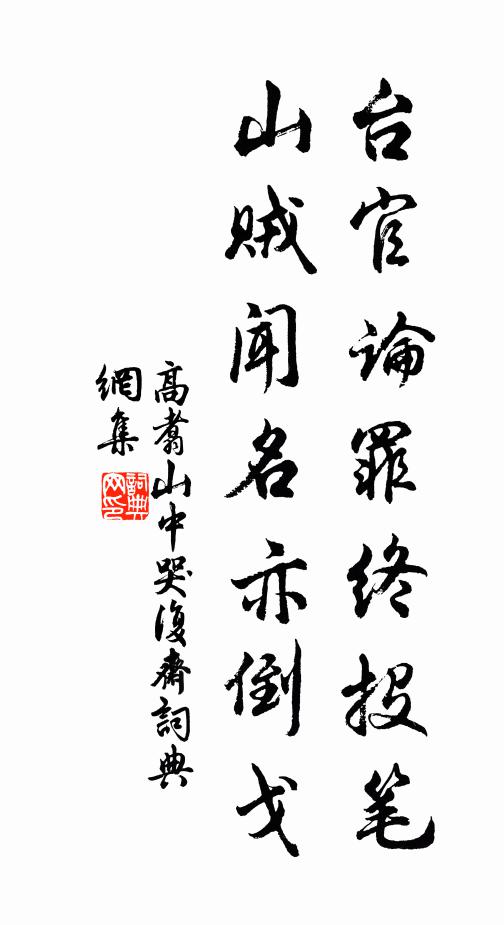 台官論罪終投笔
山贼闻名亦倒戈
高翥山中哭復齋詞典
網集
詞典
网印